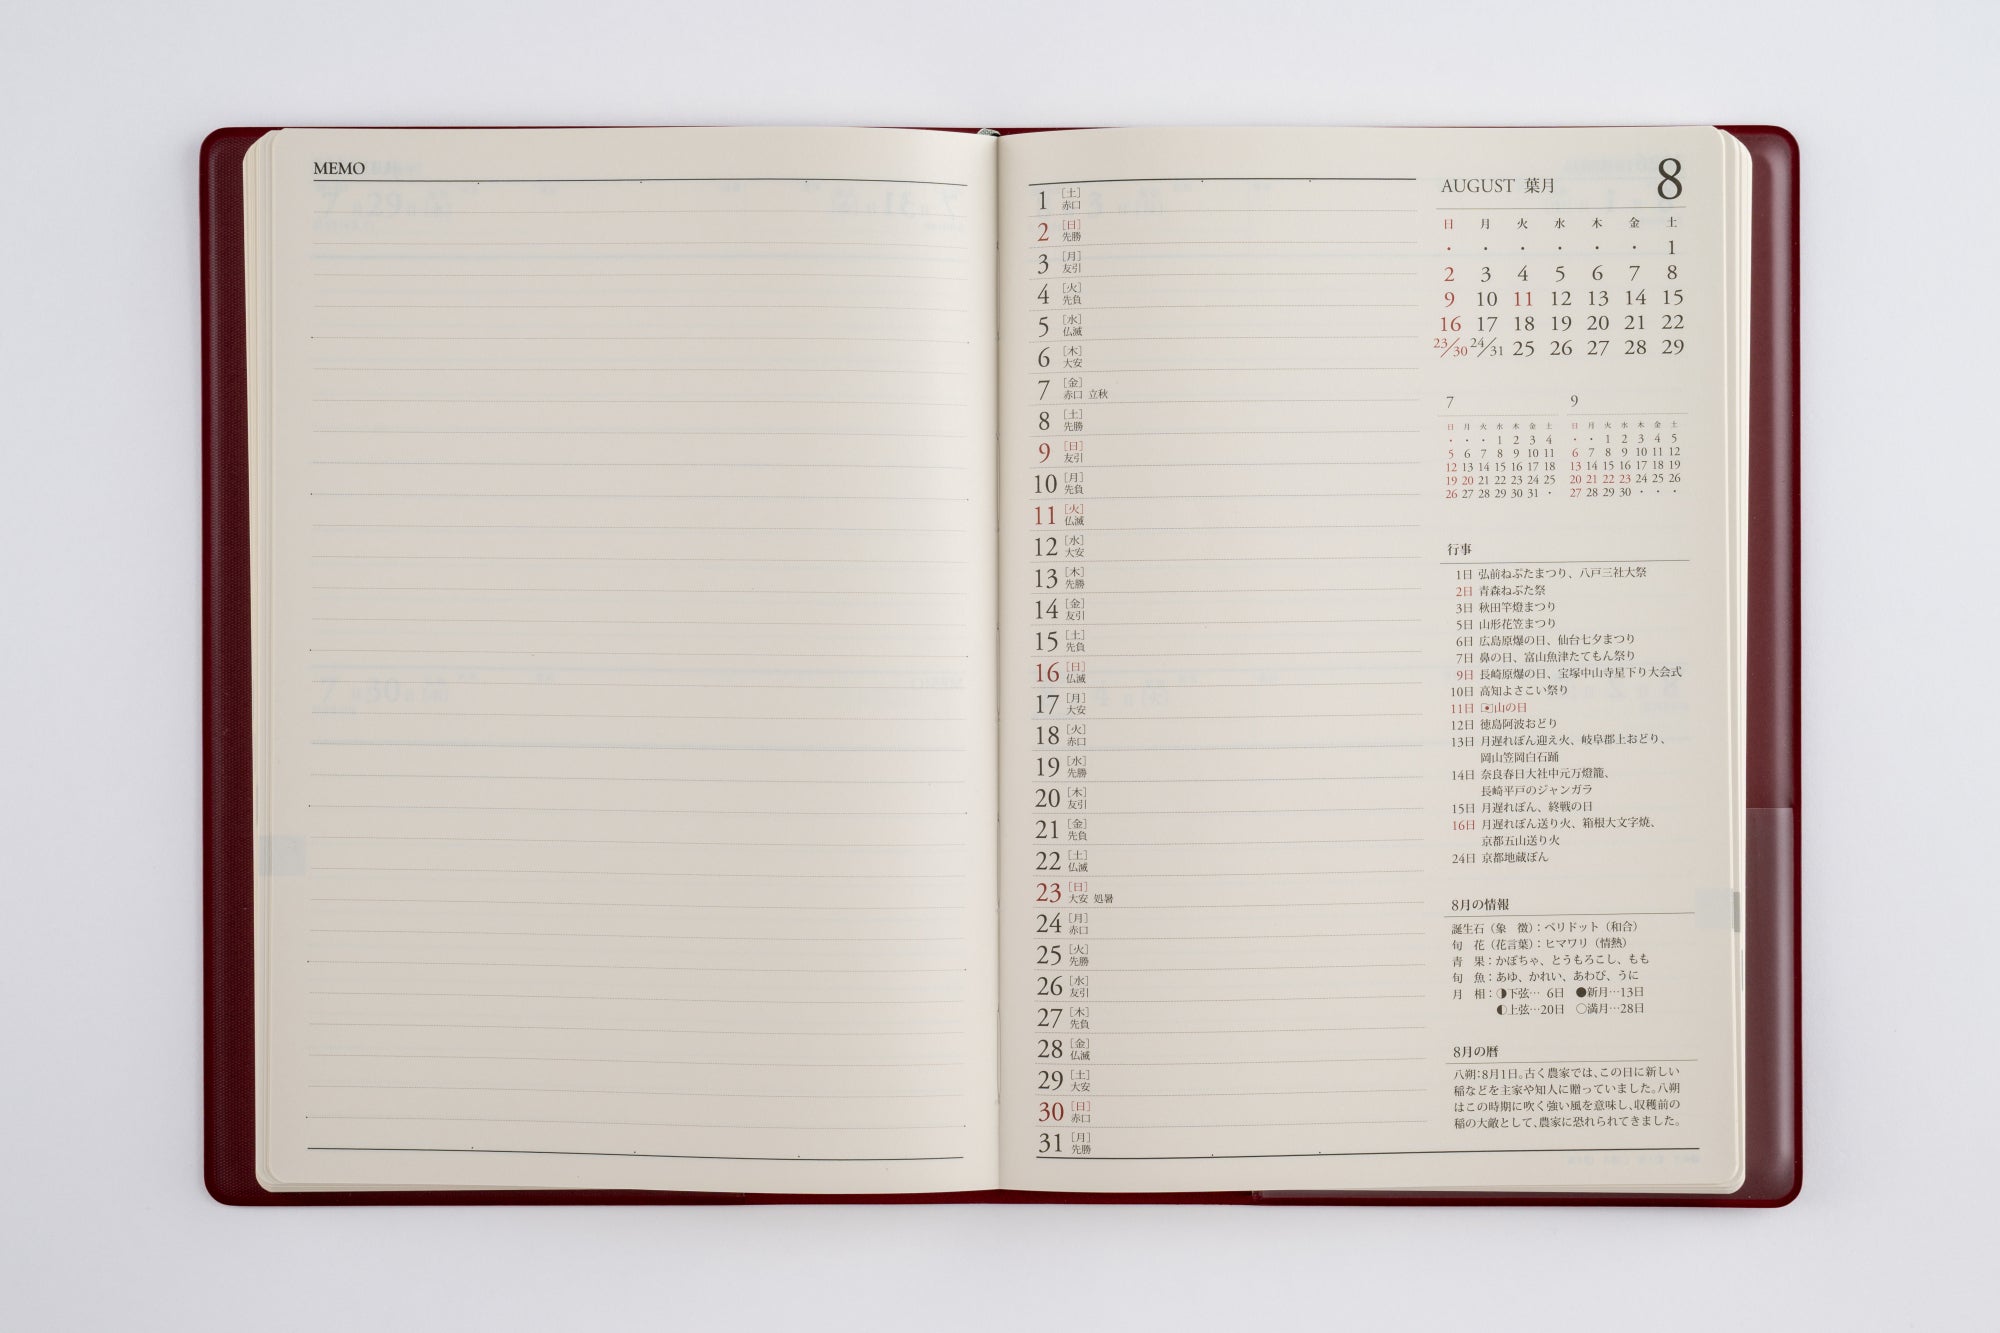 MEMO
1 [土] 赤口
2 [日] 先勝
3 [月] 友引
4 [火] 先負
5 [水] 仏滅
6 [木] 大安
7 [金] 赤口 立秋
8 [土] 先勝
9 [日] 友引
10 [月] 先負
11 [火] 仏滅
12 [水] 大安
13 [木] 先勝
14 [金] 友引
15 [土] 先負
16 [日] 仏滅
17 [月] 大安
18 [火] 赤口
19 [水] 先勝
20 [木] 友引
21 [金] 先負
22 [土] 仏滅
23 [日] 大安 処暑
24 [月] 赤口
25 [火] 先勝
26 [水] 友引
27 [木] 先負
28 [金] 仏滅
29 [土] 大安
30 [日] 赤口
31 [月] 先勝
AUGUST 葉月 8
日 月 火 水 木 金 土
・ ・ ・ ・ ・ ・ 1
2 3 4 5 6 7 8
9 10 11 12 13 14 15
16 17 18 19 20 21 22
23/30 24/31 25 26 27 28 29
7
日 月 火 水 木 金 土
・ ・ ・ 1 2 3 4
5 6 7 8 9 10 11
12 13 14 15 16 17 18
19 20 21 22 23 24 25
26 27 28 29 30 31 ・
9
日 月 火 水 木 金 土
・ ・ 1 2 3 4 5
6 7 8 9 10 11 12
13 14 15 16 17 18 19
20 21 22 23 24 25 26
27 28 29 30 ・ ・ ・
行事
1日 弘前ねぷたまつり、八戸三社大祭
2日 青森ねぶた祭
3日 秋田竿燈まつり
5日 山形花笠まつり
6日 広島原爆の日、仙台七夕まつり
7日 鼻の日、富山魚津たてもん祭り
9日 長崎原爆の日、宝塚中山寺星下り大会式
10日 高知よさこい祭り
11日 山の日
12日 徳島阿波おどり
13日 月遅れぼん迎え火、岐阜郡上おどり、
岡山笠岡白石踊
14日 奈良春日大社中元万燈籠、
長崎平戸のジャンガラ
15日 月遅れぼん、終戦の日
16日 月遅れぼん送り火、箱根大文字焼、
京都五山送り火
24日 京都地蔵ぼん
8月の情報
誕生石（象 徴）：ペリドット（和合）
旬 花（花言葉）：ヒマワリ（情熱）
青 果：かぼちゃ、とうもろこし、もも
旬 魚：あゆ、かれい、あわび、うに
月 相：◑下弦… 6日 ●新月…13日
◐上弦…20日 ○満月…28日
8月の暦
八朔：8月1日。古く農家では、この日に新しい
稲などを主家や知人に贈っていました。八朔
はこの時期に吹く強い風を意味し、収穫前の
稲の大敵として、農家に恐れられてきました。